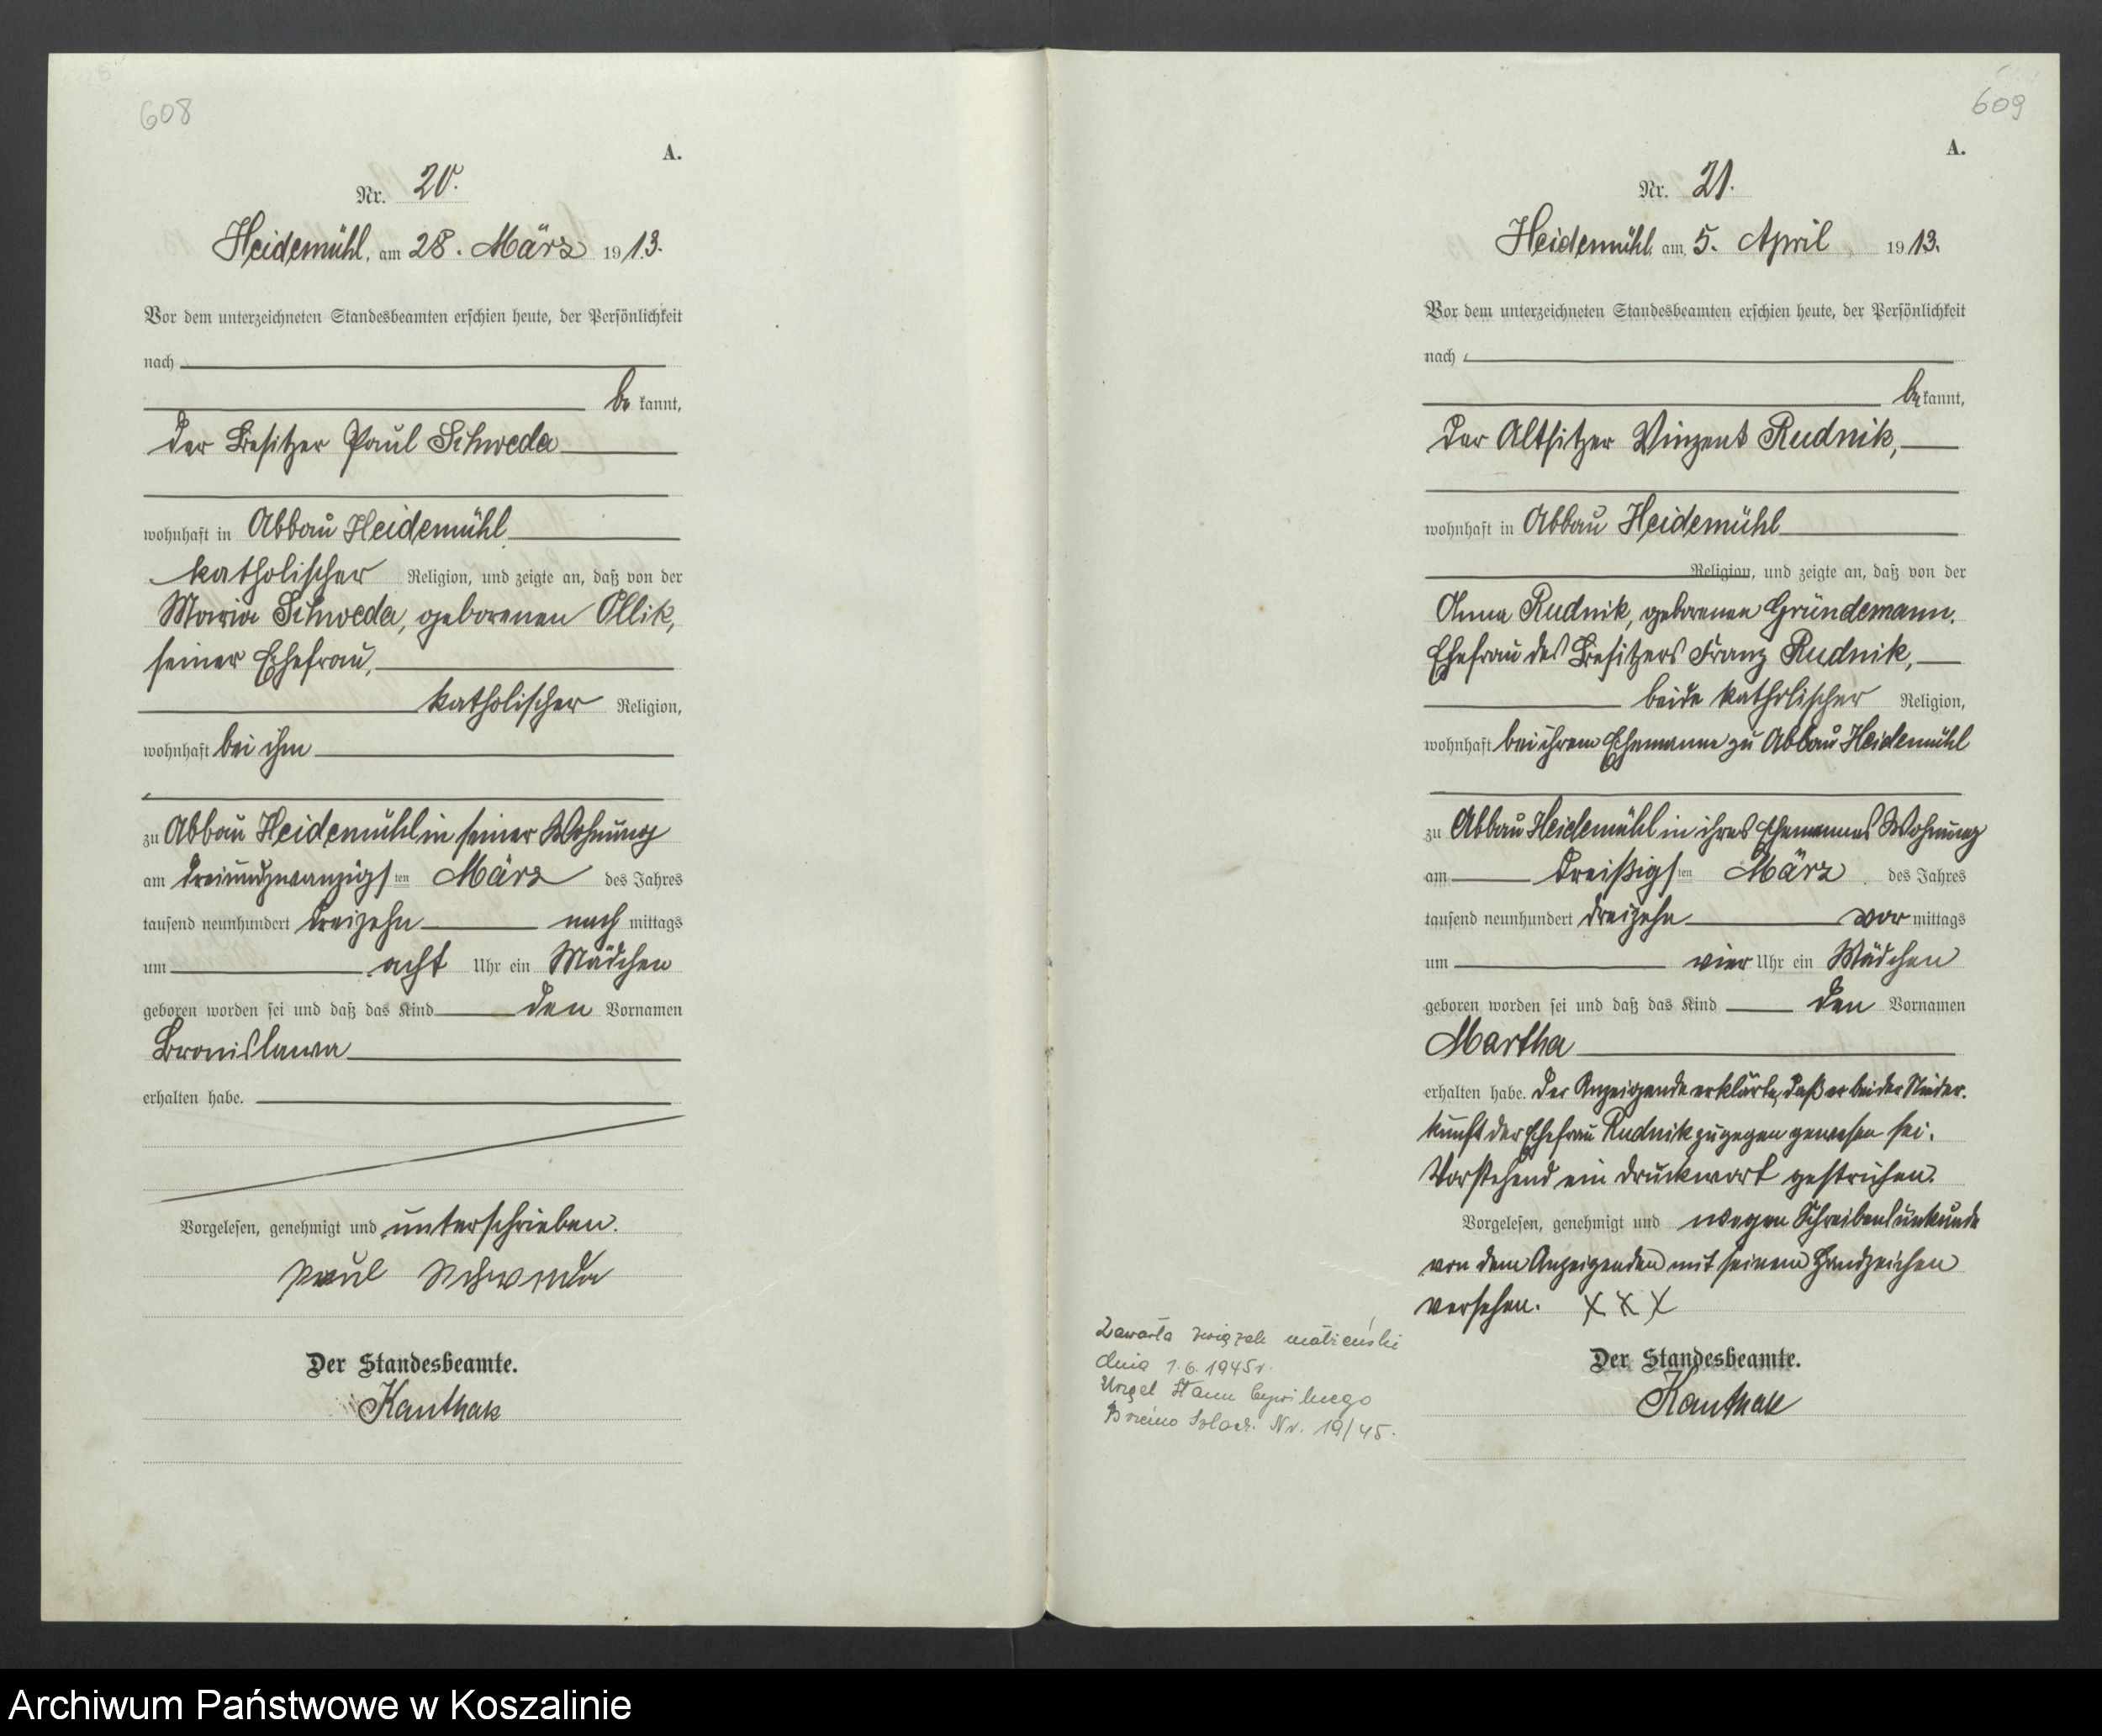 608
A.
Nr. 20.
Heidemühl, am 28. März 1913.
Vor dem unterzeichneten Standesbeamten erschien heute, der Persönlichkeit
nach
be kannt,
der Besitzer Paul Schweda
wohnhaft in Abbau Heidemühl
katholischer Religion, und zeigte an, daß von der
Maria Schweda, geborenen Ollik,
seiner Ehefrau,
katholischer Religion,
wohnhaft bei ihm
zu Abbau Heidemühl in seiner Wohnung
am dreiundzwanzigsten März des Jahres
tausend neunhundert dreizehn nach mittags
um acht Uhr ein Mädchen
geboren worden sei und daß das Kind den Vornamen
Bronislawa
erhalten habe.
Vorgelesen, genehmigt und unterschrieben.
Paul Schweda
Der Standesbeamte.
Kanthak
609
A.
Nr. 21.
Heidemühl, am 5. April 1913.
Vor dem unterzeichneten Standesbeamten erschien heute, der Persönlichkeit
nach
be kannt,
der Altsitzer Vinzent Rudnik,
wohnhaft in Abbau Heidemühl
Religion, und zeigte an, daß von der
Anna Rudnik, geborenen Gründemann,
Ehefrau des Besitzers Franz Rudnik,
beide katholischer Religion,
wohnhaft bei ihrem Ehemanne zu Abbau Heidemühl
zu Abbau Heidemühl in ihres Ehemannes Wohnung
am dreißigsten März des Jahres
tausend neunhundert dreizehn vor mittags
um vier Uhr ein Mädchen
geboren worden sei und daß das Kind den Vornamen
Martha
erhalten habe. Der Anzeigende erklärte, daß er bei der Nieder-
kunft der Ehefrau Rudnik zugegen gewesen sei.
Vorstehend ein Druckwort gestrichen.
Vorgelesen, genehmigt und wegen Schreibensunkunde
von dem Anzeigenden mit seinem Handzeichen
versehen. XXX
Der Standesbeamte.
Kanthak
Zawarła związek małżeński
dnia 1.6.1945r.
Urząd Stanu Cywilnego
Brzeźno Szlach. Nr. 19/45.
Archiwum Państwowe w Koszalinie